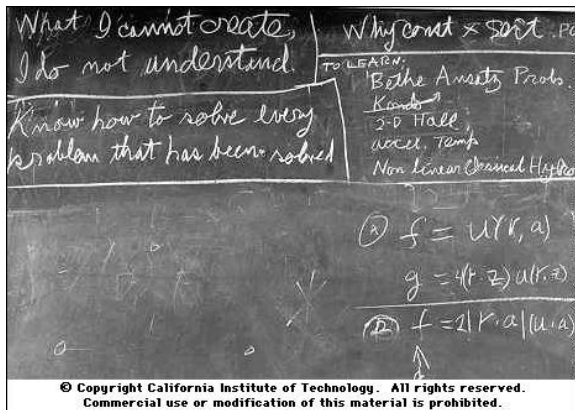 What I cannot create,
I do not understand.
Know how to solve every
problem that has been solved
Why const × sort . PO
TO LEARN:
Bethe Ansatz Probs.
Kondo
2-D Hall
accel. Temp
Non linear Classical Hydro
f = U(r, a)
g = 4(r·z) u(r,z)
f = 2|r·a|(u·a)
© Copyright California Institute of Technology. All rights reserved.
Commercial use or modification of this material is prohibited.